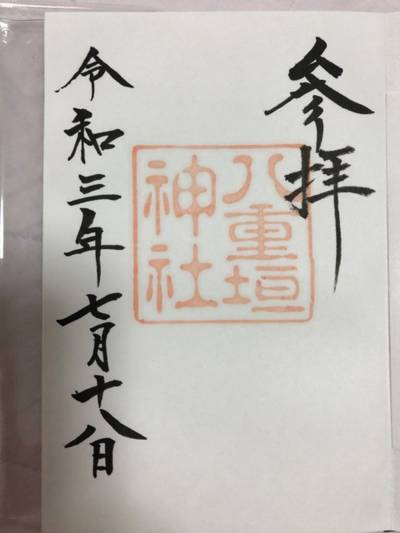 參拝
八重垣
神社
令和三年七月十八日